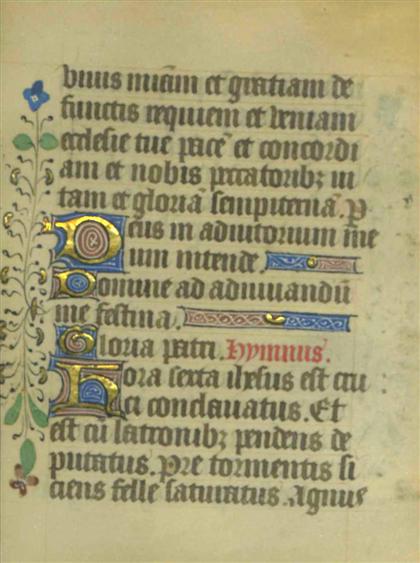 biuis miam et gratiam de
functis requiem et ueniam
ecclesie tue pacē et concordi
am et nobis peccatoribꝫ ui
tam et gloriā sempiternā. P
Deus in adiutorium me
um intende
Domine ad adiuuandū
me festina.
Gloria patri. Hymnus.
Hora sexta ihesus est cru
ci conclauatus. Et
est cū latronibꝫ pendens de
putatus. Pre tormentis si
ciens felle saturatus. Agnus